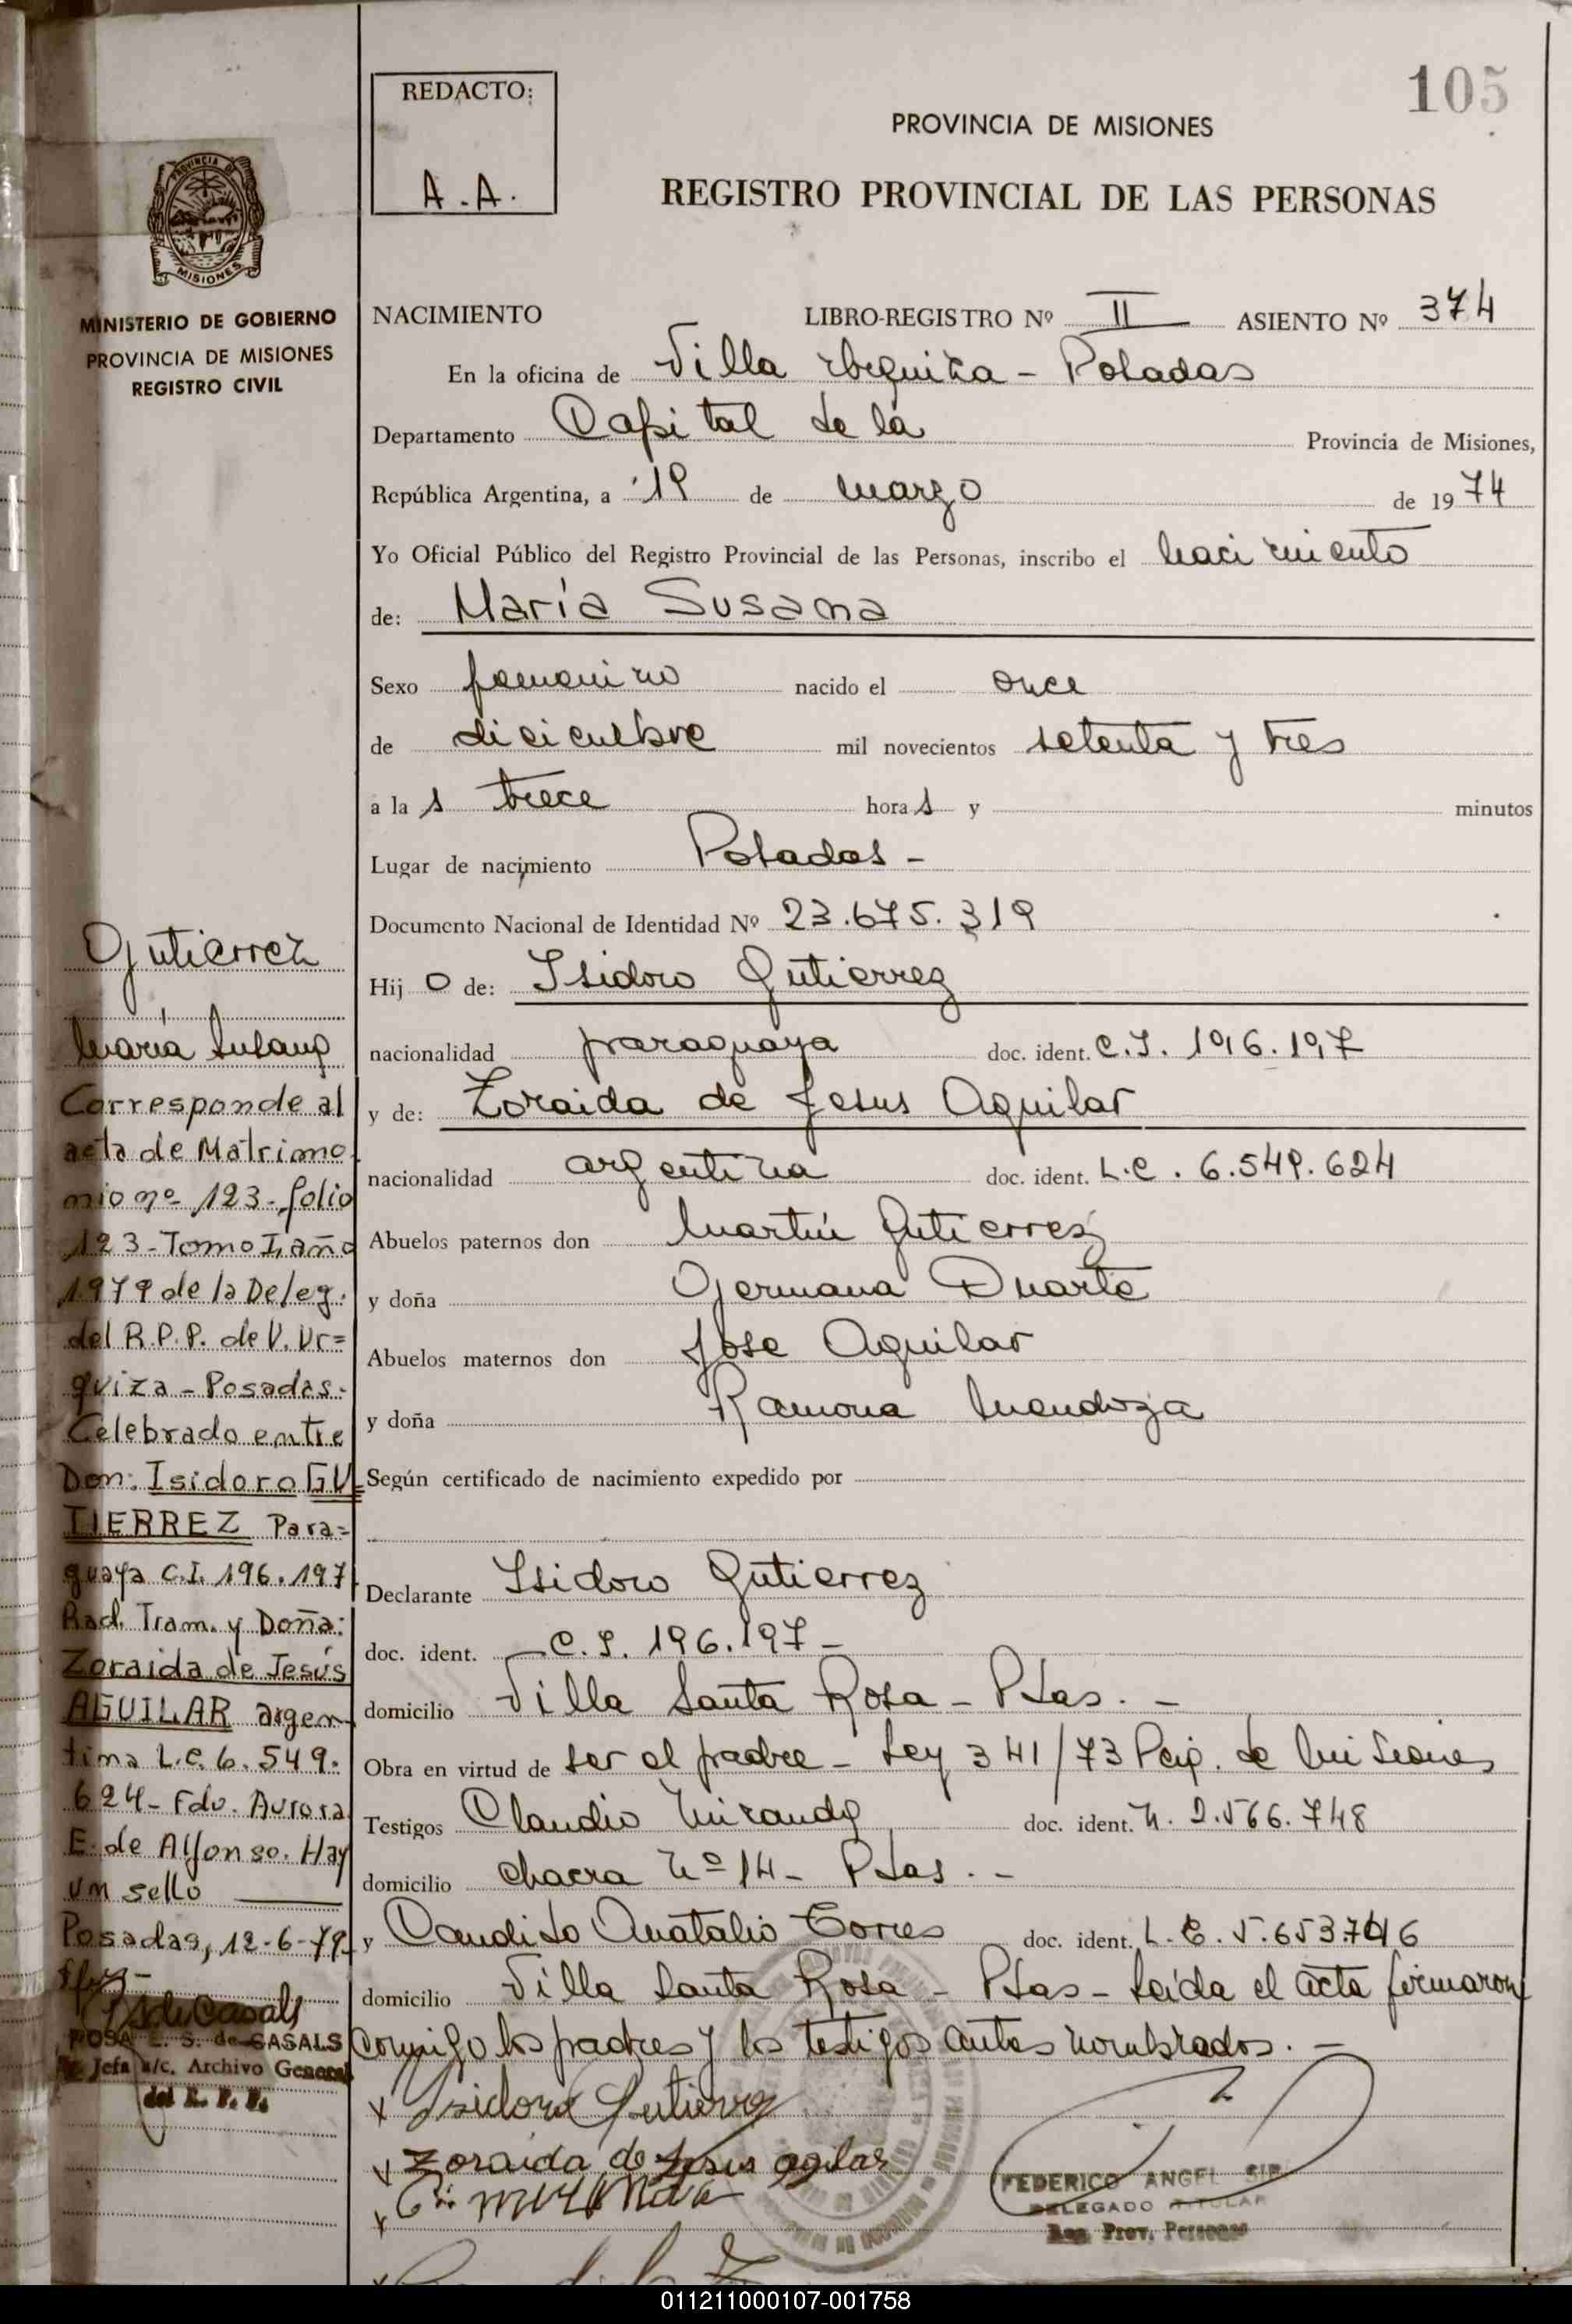 105
REDACTO:
A.A.
PROVINCIA DE MISIONES
REGISTRO PROVINCIAL DE LAS PERSONAS
PROVINCIA DE
MISIONES
MINISTERIO DE GOBIERNO
PROVINCIA DE MISIONES
REGISTRO CIVIL
NACIMIENTO LIBRO-REGISTRO Nº II ASIENTO Nº 374
En la oficina de Villa Urquiza - Posadas
Departamento Capital de la Provincia de Misiones,
República Argentina, a 19 de marzo de 1974
Yo Oficial Público del Registro Provincial de las Personas, inscribo el nacimiento
de: María Susana
Sexo femenino nacido el once
de diciembre mil novecientos setenta y tres
a las trece horas y minutos
Lugar de nacimiento Posadas -
Documento Nacional de Identidad Nº 23.675.319
Hijo de: Isidoro Gutierrez
nacionalidad paraguaya doc. ident. C.I. 196.197
y de: Zoraida de Jesus Aguilar
nacionalidad argentina doc. ident. L.C. 6.549.624
Abuelos paternos don Martín Gutierrez
y doña Germana Duarte
Abuelos maternos don Jose Aguilar
y doña Ramona Mendoza
Según certificado de nacimiento expedido por
Declarante Isidoro Gutierrez
doc. ident. C.I. 196.197 -
domicilio Villa Santa Rosa - Pdas. -
Obra en virtud de ser el padre - Ley 341/73 Pcia. de Misiones
Testigos Claudio Miranda doc. ident. M. 2.566.748
domicilio chacra Nº 14 - Pdas. -
y Candido Anatalio Torres doc. ident. L.E. 5.653.746
domicilio Villa Santa Rosa - Pdas - Leída el acta firmaron
conmigo los padres y los testigos antes nombrados. -
x Isidoro Gutierrez
x Zoraida de Jesus agilar
x
FEDERICO ANGEL
DELEGADO TITULAR
Reg. Prov. Personas
Gutierrez
María Susana
Corresponde al
acta de Matrimo
nio nº 123 - folio
123 - Tomo I, año
1979 de la Deleg.
del R.P.P. de V. Ur=
quiza - Posadas.-
Celebrado entre
Don: Isidoro GU=
TIERREZ Para=
guaya C.I. 196.197
Rad. Tram. y Doña:
Zoraida de Jesús
AGUILAR argen
tina L.C. 6.549.
624 - Fdo. Aurora
E. de Alfonso. Hay
un sello
Posadas, 12-6-79
ROSA E. S. de CASALS
Jefa a/c. Archivo General
del R. P. P.
011211000107-001758